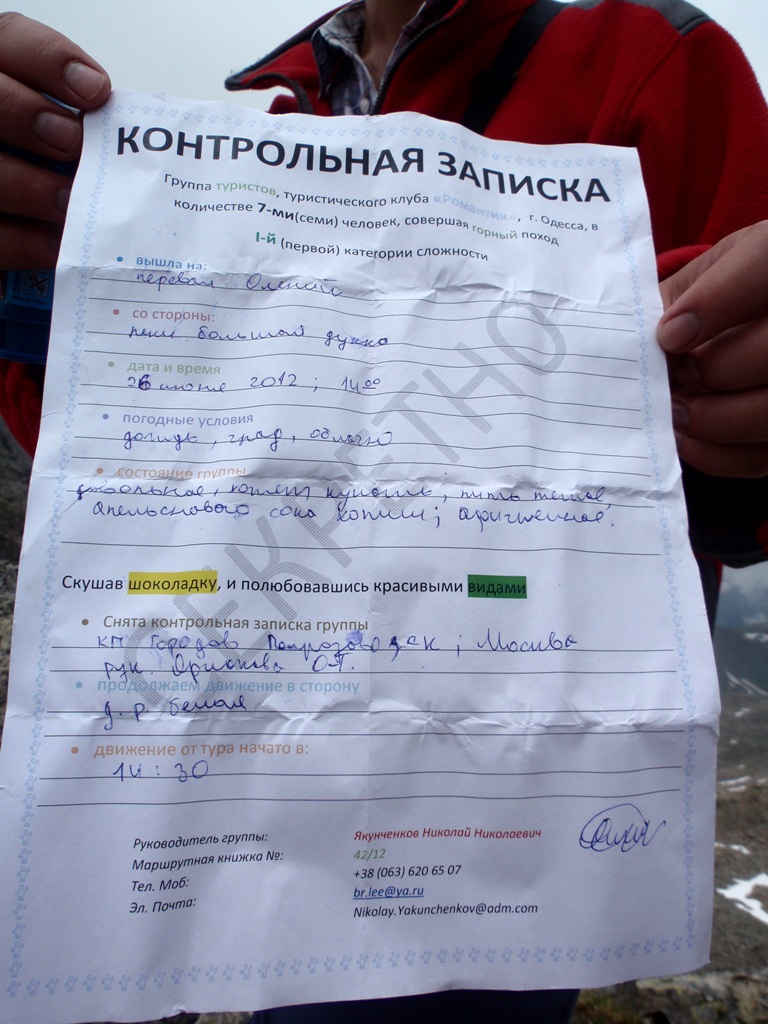 КОНТРОЛЬНАЯ ЗАПИСКА
Группа туристов, туристического клуба «Романтик», г. Одесса, в
количестве 7-ми(семи) человек, совершая горный поход
I-й (первой) категории сложности
• вышла на:
перевал
• со стороны:
реки большая дукка
• дата и время
26 июня 2012 ; 14 00
• погодные условия
дождь, град, облачно
• состояние группы
довольное, хотят кушать, пить
апельснового сока хотим;
Скушав шоколадку, и полюбовавшись красивыми видами
• Снята контрольная записка группы
КП Городов Петрозаводск ; Москва
рук. О.Г.
• продолжаем движение в сторону
д. р. белая
• движение от тура начато в:
14 : 30
Руководитель группы: Якунченков Николай Николаевич
Маршрутная книжка №: 42/12
Тел. Моб: +38 (063) 620 65 07
Эл. Почта: br.lee@ya.ru
Nikolay.Yakunchenkov@adm.com
СЕКРЕТНО